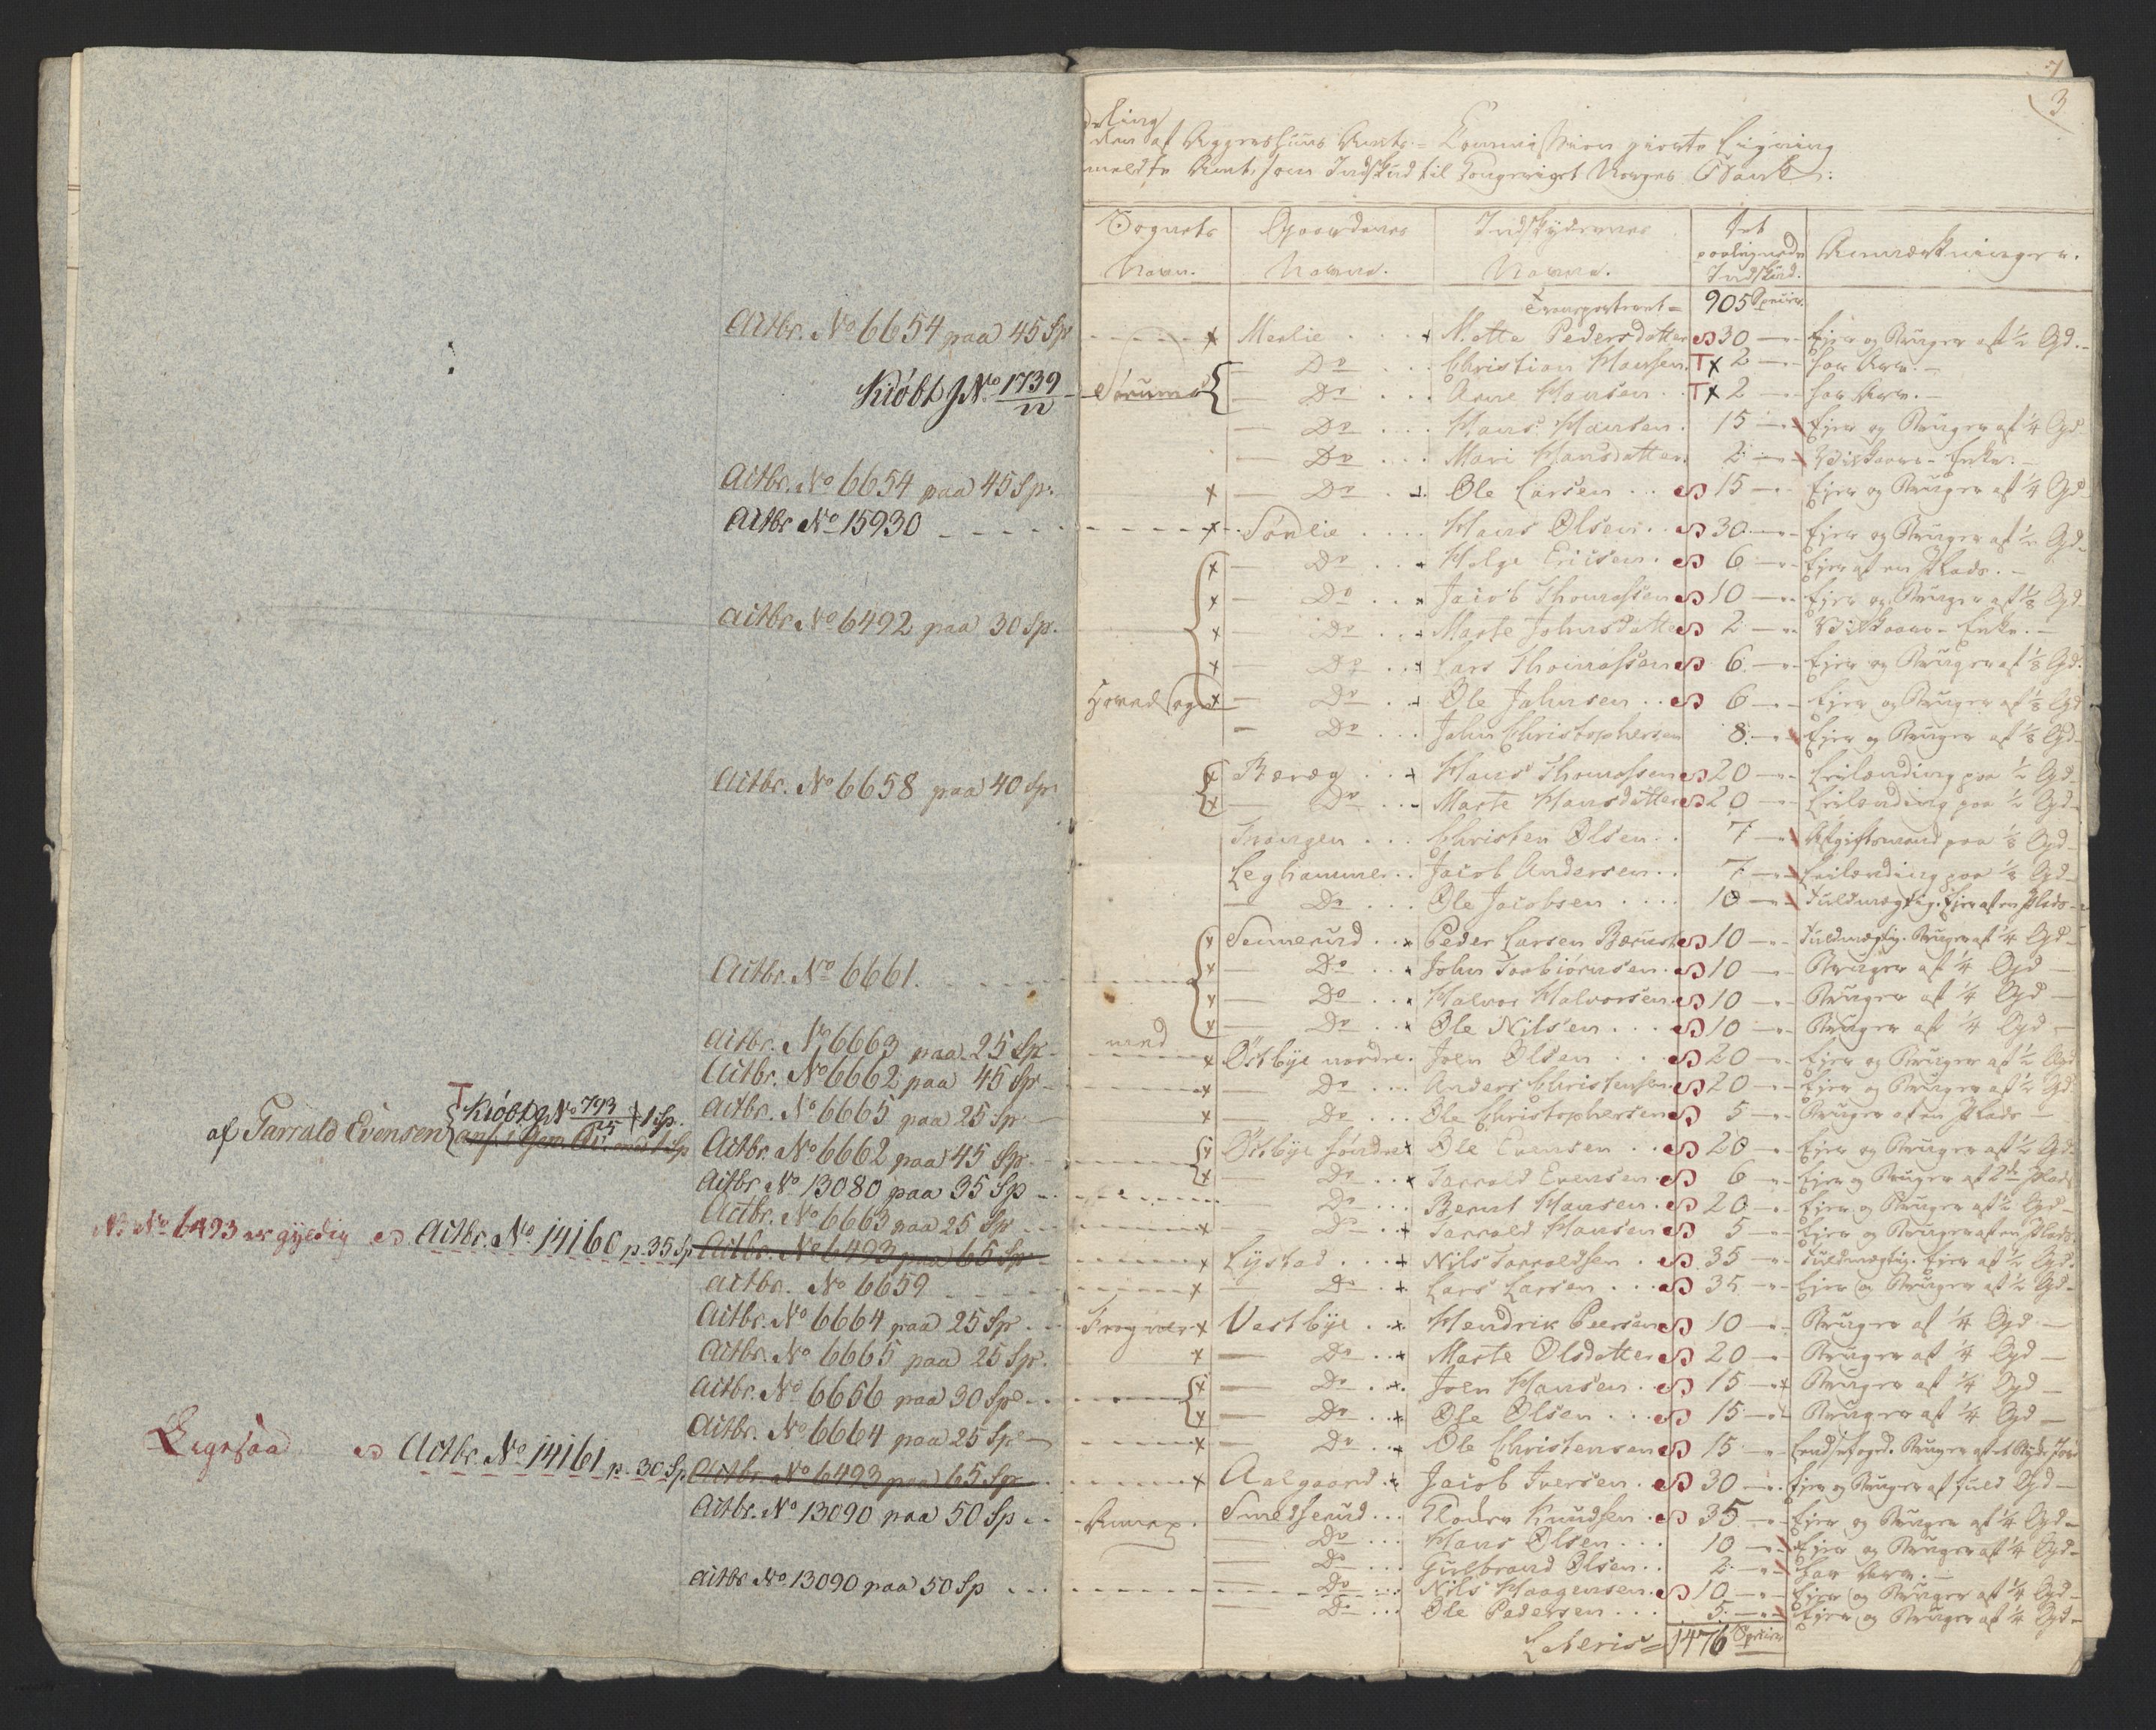 Actbr. No 6654 paa 45 Sp
Kiöbt J No 1739/22
Actbr. No 6654 paa 45 Sp.
Actbr No 15930
Actbr No 6492 paa 30 Sp.
Actbr. No 6658 paa 40 Sp
Actbr. No 6661.
Actbr. No 6663 paa 25 Sp
Actbr. No 6662 paa 45 Sp
T Kiöbt J No 793/25 1 Sp.
Actbr. No 6665 paa 25 Sp
af Tarrald Evensen
Actbr. No 6662 paa 45 Sp.
Actbr No 13080 paa 35 Sp
Actbr. No 6663 paa 25 Sp
NB No 6493 er gyldig Actbr. No 14160 p. 35 Sp Actbr. No 6493 paa 65 Sp
Actbr. No 6659
Actbr. No 6664 paa 25 Sp
Actbr. No 6665 paa 25 Sp.
Actbr. No 6656 paa 30 Sp
Actbr. No 6664 paa 25 Sp
Ligesaa Actbr. No 14161 p. 30 Sp Actbr No 6493 paa 65 Sp
Actbr. No 13090 paa 50 Sp
Actbr No 13090 paa 50 Sp
3
den af Aggershuus Amts-Commission giorte Ligning
meldte Amt, som Indskud til Kongeriget Norges Bank.
Sognets Navn. Gaardenes Navne. Indskydernes Navne. Det paalignede Indskud. Anmærkninger.
Transporteret 905 Species
Meelie Mette Pedersdatter 30 Ejer og Bruger af 1/2 Gd.
Sørums Do Christian Hansen T 2 har Arv.
Do Arne Hansen T 2 har Arv.
Do Hans Hansen 15 Ejer og Bruger af 1/4 Gd
Do Mari Hansdatter 2 Vilkaars-Enke.
Do Ole Larsen 15 Ejer og Bruger af 1/4 Gd
Sønlie Hans Olsen 30 Ejer og Bruger af 1/2 Gd
Do Helge Ericsen 6 Ejer af en Plads.
Do Jacob Thomassen 10 Ejer og Bruger af 1/8 Gd
Do Marte Johnsdatter 2 Vilkaars-Enke.
Do Lars Thomassen 6 Ejer og Bruger af 1/8 Gd.
Hovind Sogn Do Ole Johnsen 6 Ejer og Bruger af 1/8 Gd
Do John Christophersen 8 Ejer og Bruger af 1/8 Gd
Hans Thomassen 20 Leilænding paa 1/2 Gd
Do Marte Hansdatter 20 Leilænding paa 1/2 Gd
Christen Olsen 7 Afgiftsmand paa 1/8 Gd
Leghammer Jacob Andersen 7 Leilænding paa 1/8 Gd
Do Ole Jacobsen 10 Fuldmægtig. Ejer af en Plads
Peder Larsen 10 Fuldmægtig. Bruger af 1/4 Gd
Do John Torbiörnsen 10 Bruger af 1/4 Gd
Do Halvor Halvorsen 10 Bruger af 1/4 Gd
Do Ole Nilsen 10 Bruger af 1/4 Gd
Østbye nordre Joen Olsen 20 Ejer og Bruger af 1/2 Gd
Do Anders Christensen 20 Ejer og Bruger af 1/2 Gd
Do Ole Christophersen 5 Bruger af en Plads
Østbye søndre Ole Evensen 20 Ejer og Bruger af 1/2 Gd
Do Tarrald Evensen 6 Ejer og Bruger af 2de Plads
Do Bernt Hansen 20 Ejer og Bruger af 1/2 Gd
Do Tarrald Hansen 5 Ejer og Bruger af en Plads
Lystad Nils Tarraldsen 35 Fuldmægtig. Ejer af 1/2 Gd
Do Lars Larsen 35 Ejer og Bruger af 1/2 Gd
Frogner Vestbye Hendrik Peersen 10 Bruger af 1/4 Gd
Do Marte Olsdatter 20 Bruger af 1/4 Gd
Do Joen Hansen 15 Bruger af 1/4 Gd
Do Ole Olsen 15 Bruger af 1/4 Gd
Do Ole Christensen 15
Aalgaard Jacob Iversen 30 Ejer og Bruger af fuld Gd
Annex. Smedserud Knudsen 35 Ejer og Bruger af 1/4 Gd
Do Hans Olsen 10 Ejer og Bruger af 1/4 Gd
Do Gulbrand Olsen 2 har Arv.
Do Nils Haagensen 10 Ejer og Bruger af 1/4 Gd
Do Ole Pedersen 5 Ejer og Bruger af 1/4 Gd
Lateris 1476 Species